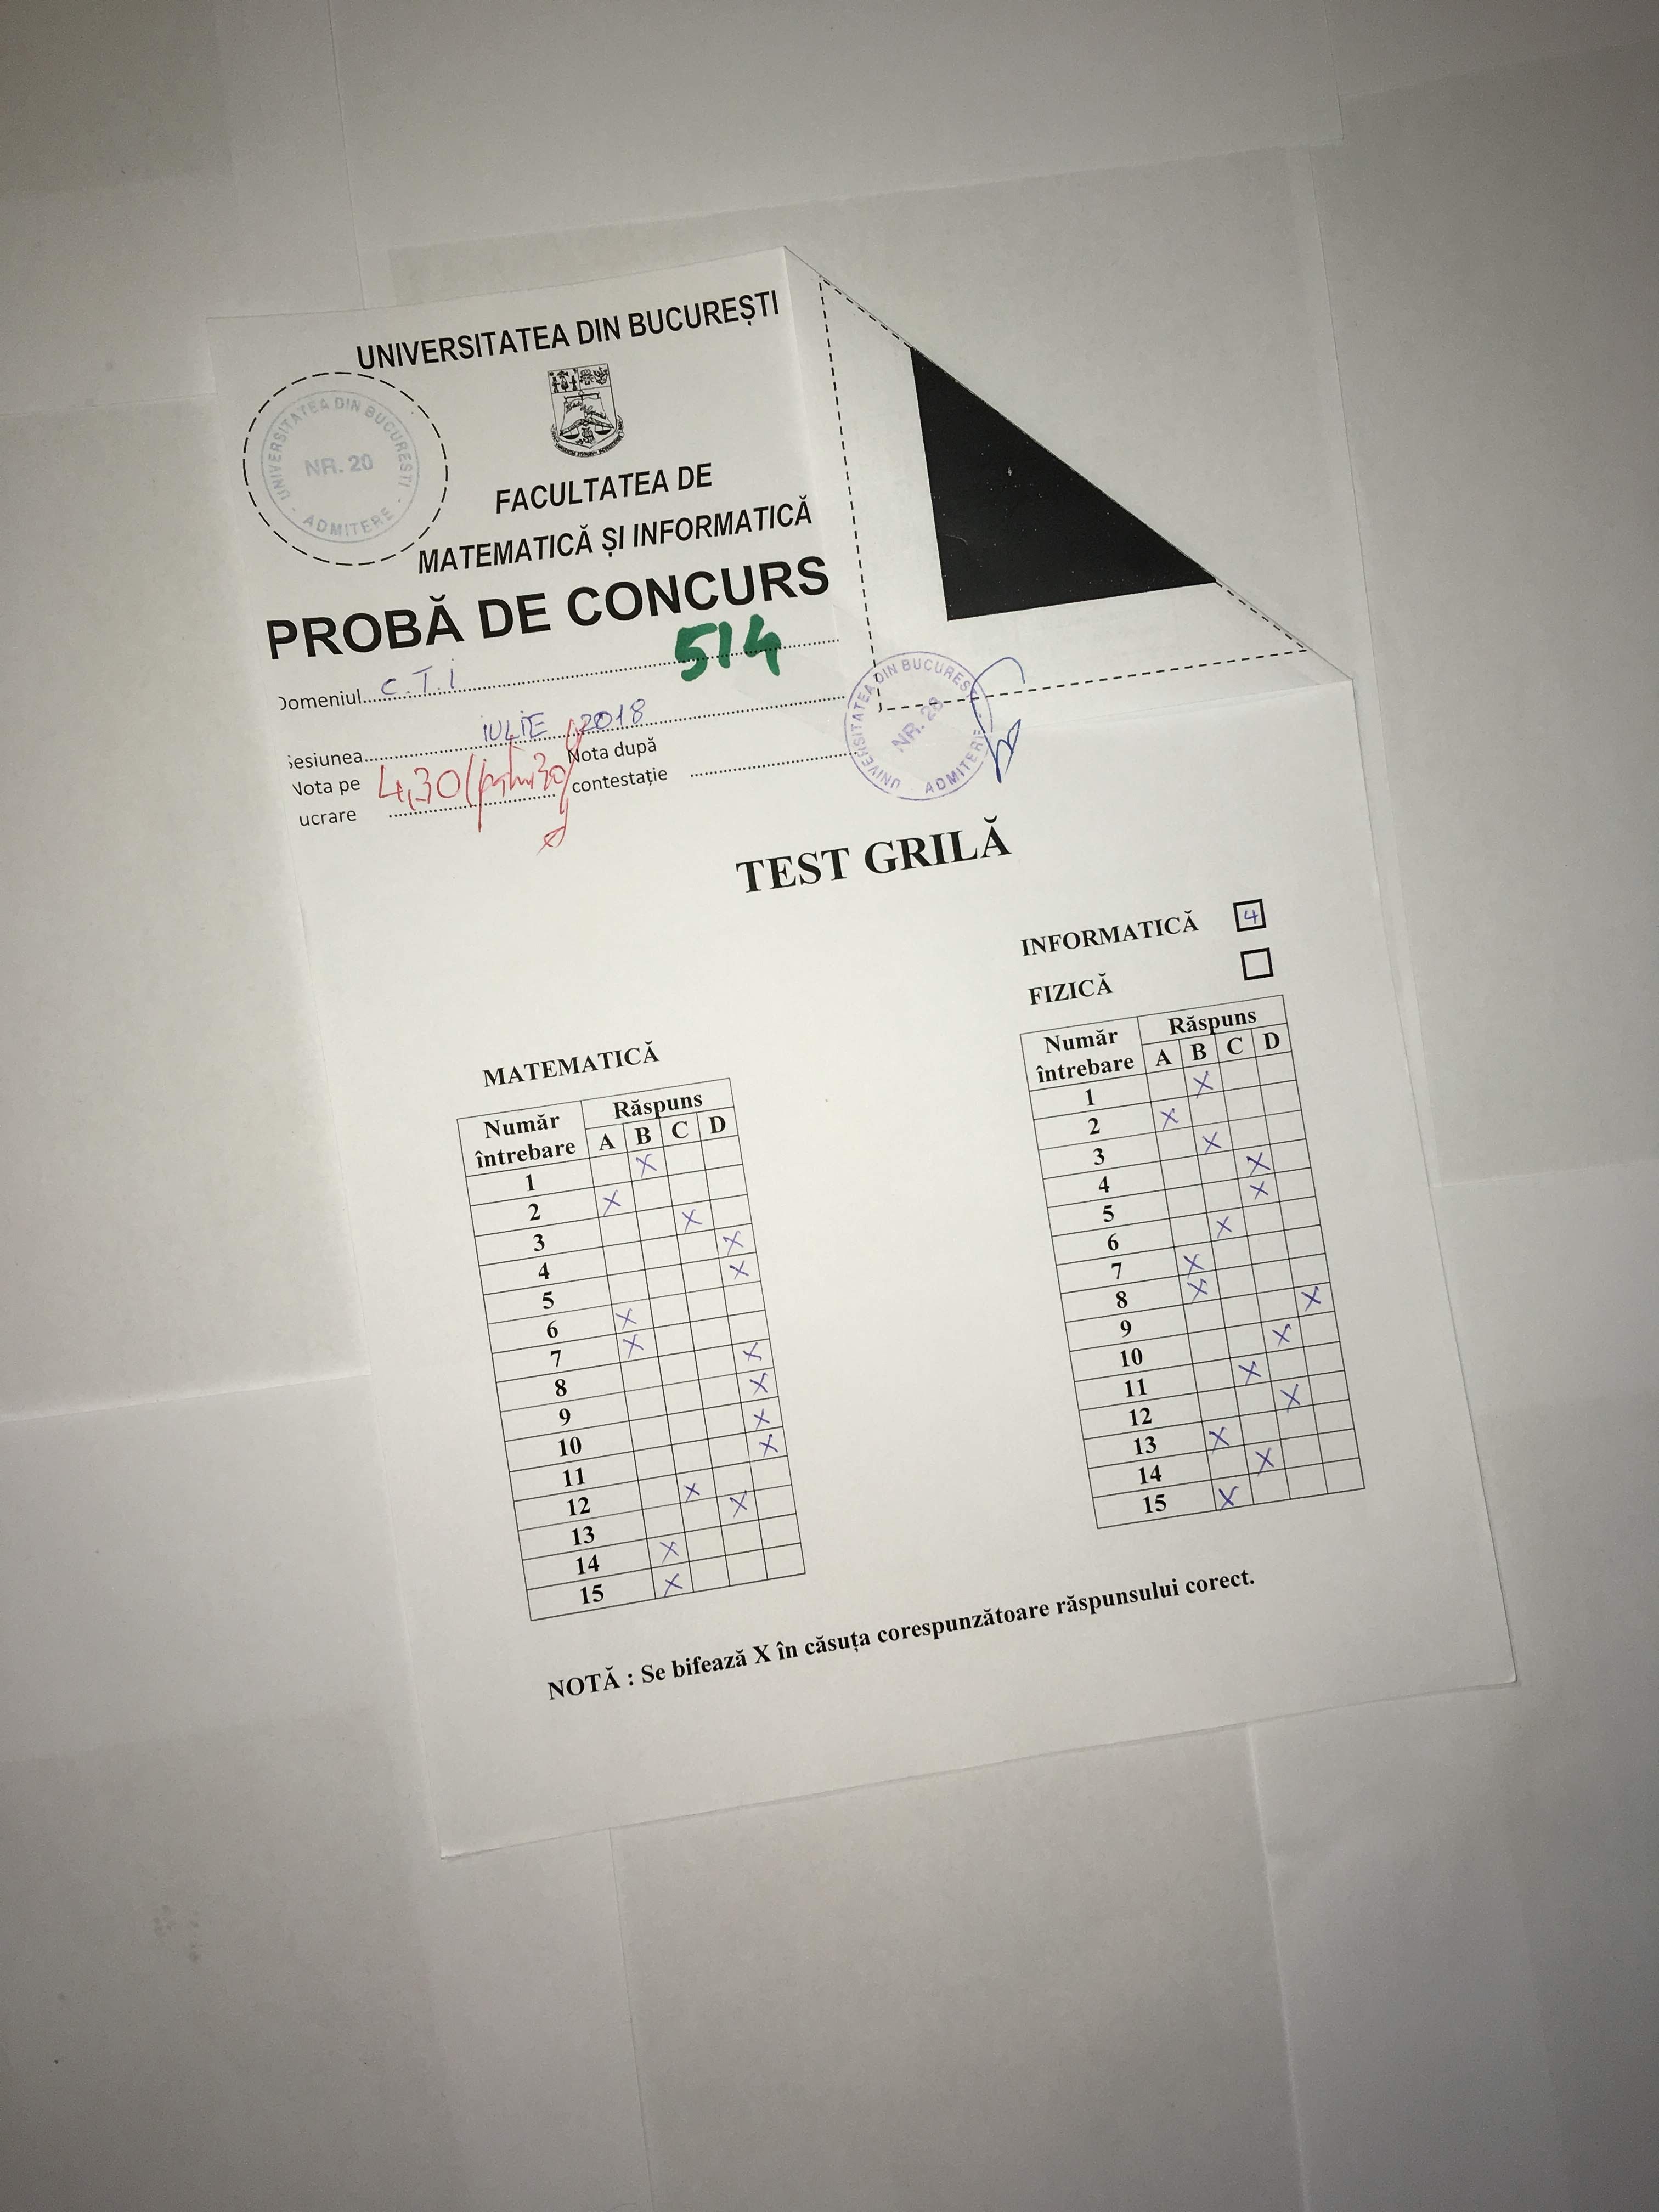 UNIVERSITATEA DIN BUCUREȘTI
UNIVERSITATEA DIN BUCURESTI
NR. 20
ADMITERE
FACULTATEA DE
MATEMATICĂ ȘI INFORMATICĂ
PROBĂ DE CONCURS
514
Domeniul C.T.I
Sesiunea IULIE 2018
Nota pe
ucrare 4,30
Nota după
contestație
UNIVERSITATEA DIN BUCURESTI
NR. 28
ADMITERE
TEST GRILĂ
INFORMATICĂ 4
FIZICĂ
MATEMATICĂ
Număr întrebare Răspuns
A B C D
1 X
2 X
3 X
4 X
5 X
6 X
7 X
8 X
9 X
10 X
11 X
12 X
13 X
14 X
15 X
Număr întrebare Răspuns
A B C D
1 X
2 X
3 X
4 X
5 X
6 X
7 X
8 X
9 X
10 X
11 X
12 X
13 X
14 X
15 X
NOTĂ : Se bifează X în căsuța corespunzătoare răspunsului corect.